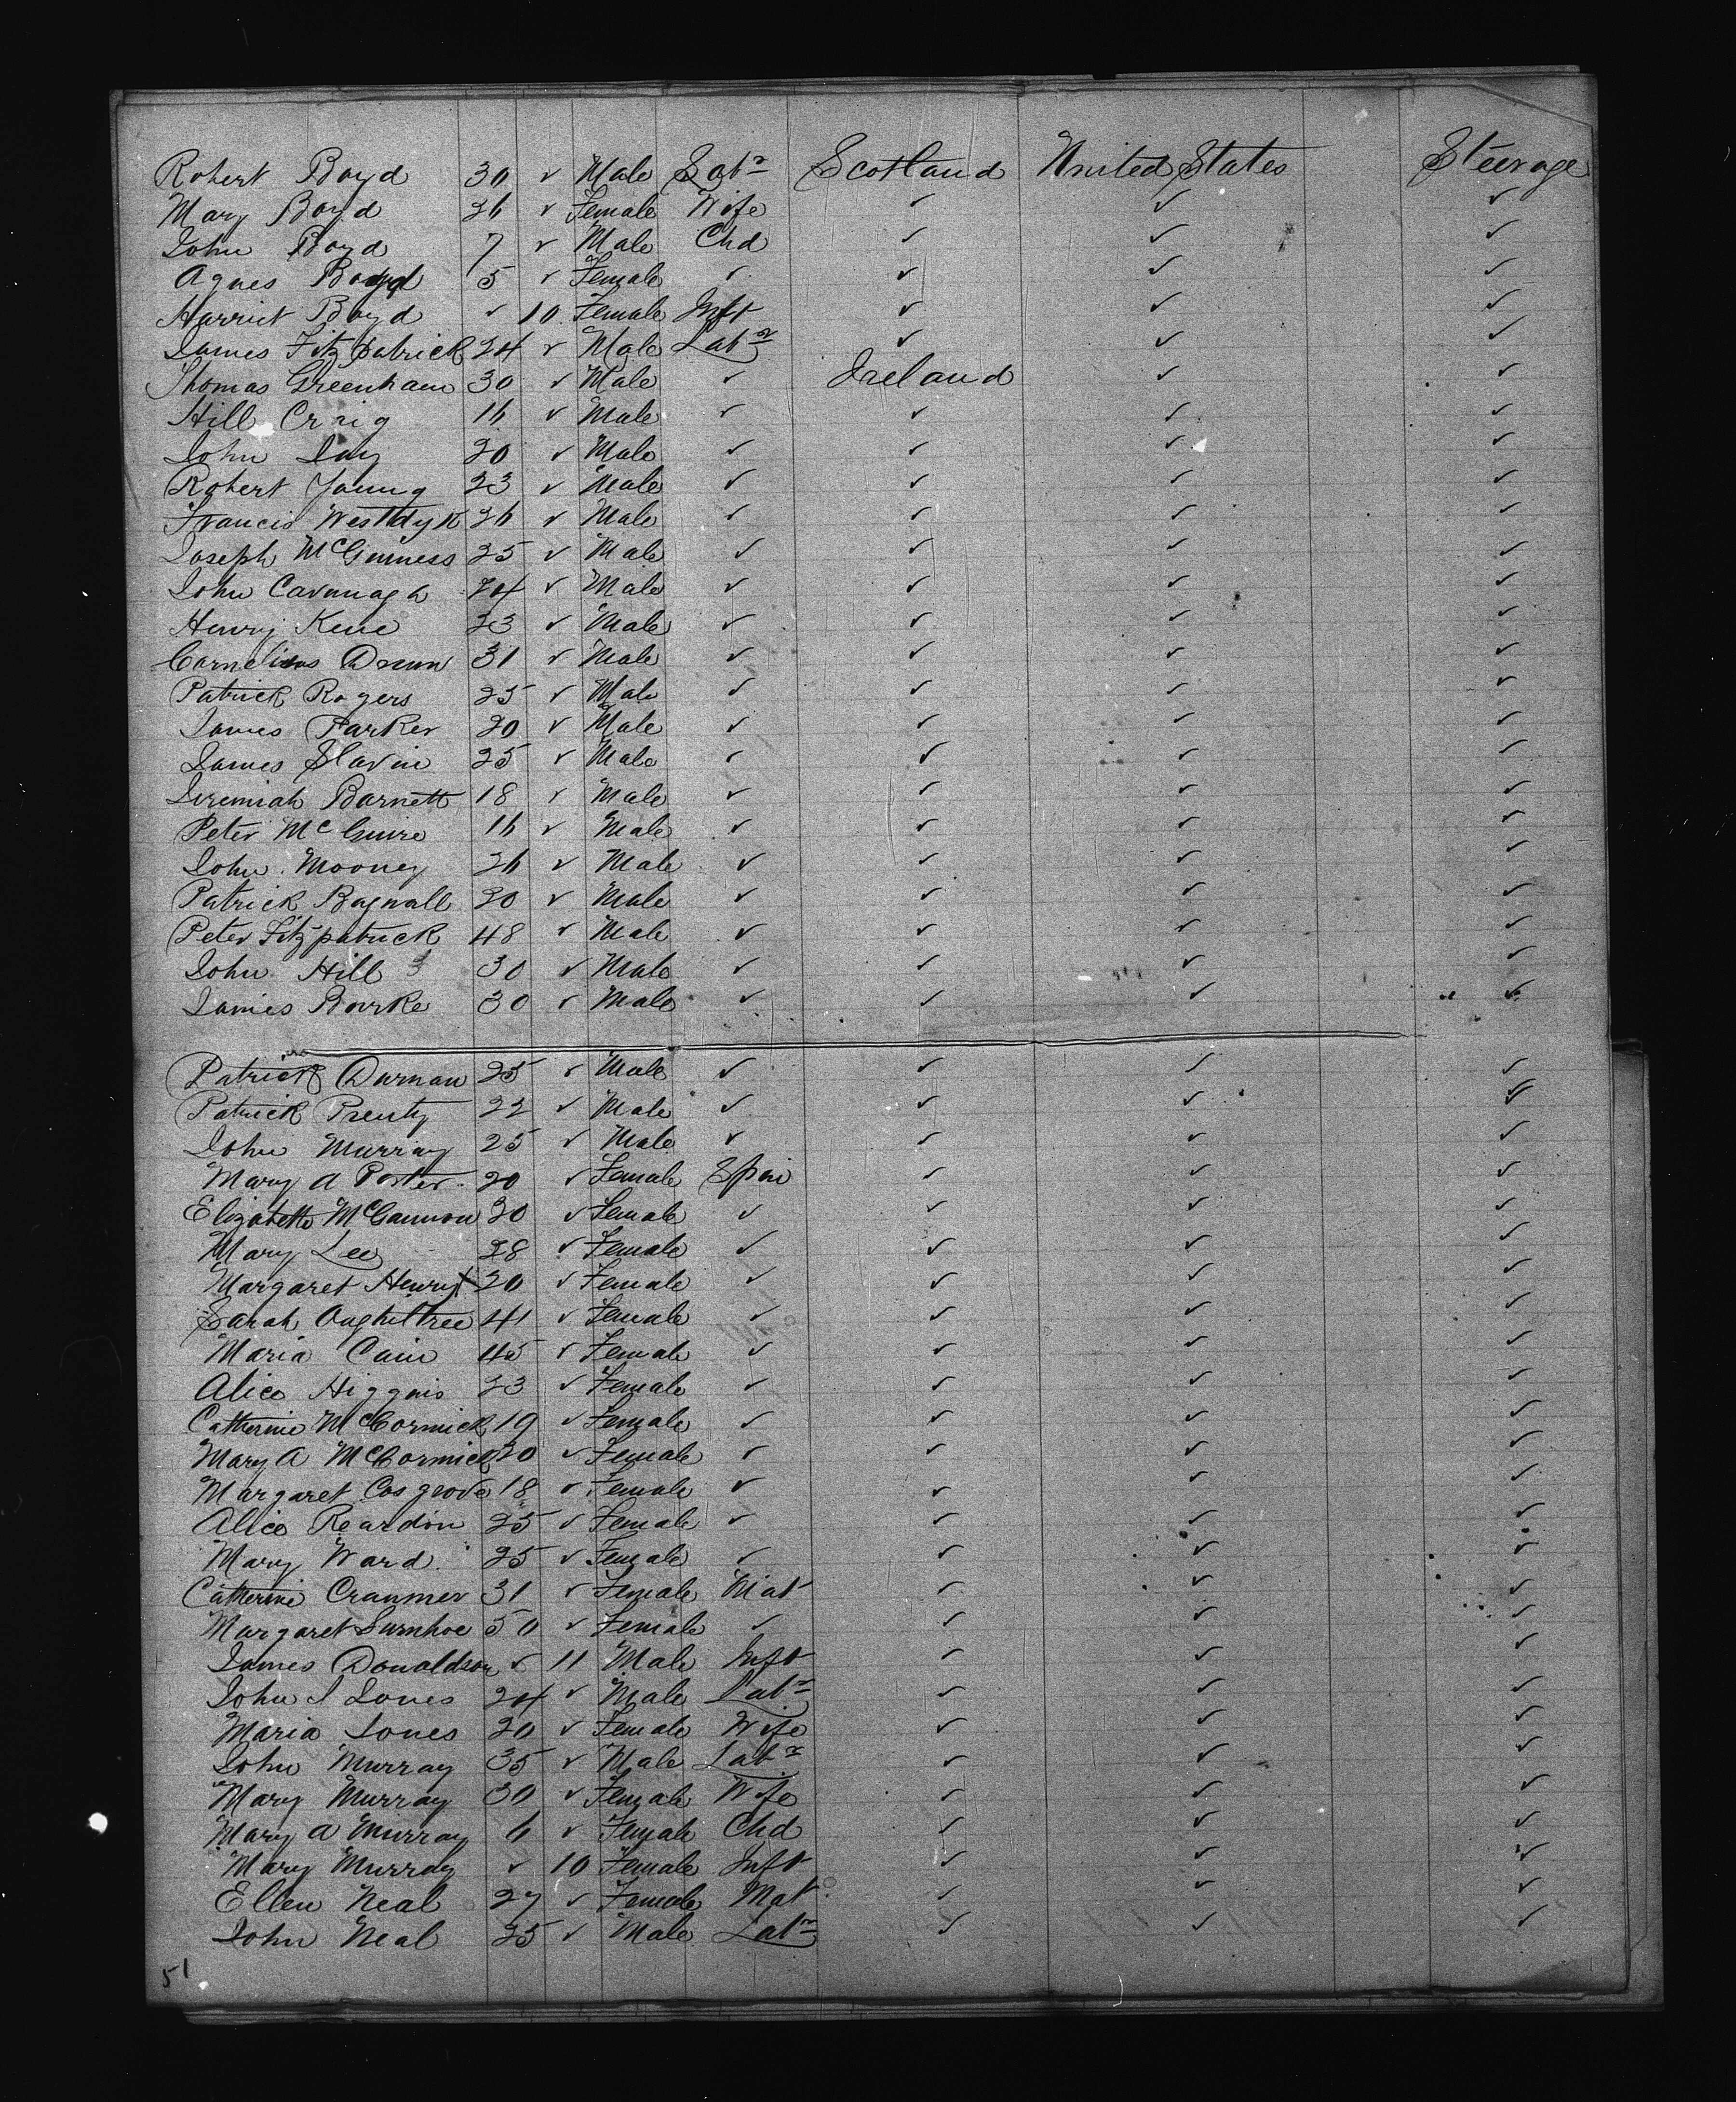 Robert Boyd 30 ✓ Male Labr Scotland United States Steerage
Mary Boyd 26 ✓ Female Wife ✓ ✓ ✓
John Boyd 7 ✓ Male Chd ✓ ✓ ✓
Agnes Boyd 5 ✓ Female ✓ ✓ ✓ ✓
Harriet Boyd ✓ 10 Female Inft ✓ ✓ ✓
James Fitzpatrick 24 ✓ Male Labr ✓ ✓ ✓
Thomas Greenham 30 ✓ Male ✓ Ireland ✓ ✓
Hill Craig 16 ✓ Male ✓ ✓ ✓ ✓
John 20 ✓ Male ✓ ✓ ✓ ✓
Robert Young 23 ✓ Male ✓ ✓ ✓ ✓
Francis Westdyk 26 ✓ Male ✓ ✓ ✓ ✓
Joseph McGuiness 25 ✓ Male ✓ ✓ ✓ ✓
John Cavanagh 24 ✓ Male ✓ ✓ ✓ ✓
Henry Kene 23 ✓ Male ✓ ✓ ✓ ✓
Cornelius Drum 31 ✓ Male ✓ ✓ ✓ ✓
Patrick Rogers 25 ✓ Male ✓ ✓ ✓ ✓
James Parker 20 ✓ Male ✓ ✓ ✓ ✓
James Slavin 25 ✓ Male ✓ ✓ ✓ ✓
Jeremiah Barnett 18 ✓ Male ✓ ✓ ✓ ✓
Peter McGuire 16 ✓ Male ✓ ✓ ✓ ✓
John Mooney 26 ✓ Male ✓ ✓ ✓ ✓
Patrick Bagnall 20 ✓ Male ✓ ✓ ✓ ✓
Peter Fitzpatrick 48 ✓ Male ✓ ✓ ✓ ✓
John Hill 30 ✓ Male ✓ ✓ ✓ ✓
James Bourke 30 ✓ Male ✓ ✓ ✓ ✓
Patrick Durnan 25 ✓ Male ✓ ✓ ✓ ✓
Patrick Prenty 22 ✓ Male ✓ ✓ ✓ ✓
John Murray 25 ✓ Male ✓ ✓ ✓ ✓
Mary A Porter 20 ✓ Female Spin ✓ ✓ ✓
Elizabeth McGannon 30 ✓ Female ✓ ✓ ✓ ✓
Mary Lee 28 ✓ Female ✓ ✓ ✓ ✓
Margaret Henry 20 ✓ Female ✓ ✓ ✓ ✓
Sarah Ougheltree 41 ✓ Female ✓ ✓ ✓ ✓
Maria Cain 45 ✓ Female ✓ ✓ ✓ ✓
Alice Higgins 23 ✓ Female ✓ ✓ ✓ ✓
Catherine McCormick 19 ✓ Female ✓ ✓ ✓ ✓
Mary A McCormick 20 ✓ Female ✓ ✓ ✓ ✓
Margaret Cosgrove 18 ✓ Female ✓ ✓ ✓ ✓
Alice Reardon 25 ✓ Female ✓ ✓ ✓ ✓
Mary Ward 25 ✓ Female ✓ ✓ ✓ ✓
Catherine Cranmer 31 ✓ Female Mat ✓ ✓ ✓
Margaret 50 ✓ Female ✓ ✓ ✓ ✓
James Donaldson ✓ 11 Male Inft ✓ ✓ ✓
John J Jones 24 ✓ Male Labr ✓ ✓ ✓
Maria Jones 20 ✓ Female Wife ✓ ✓ ✓
John Murray 35 ✓ Male Labr ✓ ✓ ✓
Mary Murray 30 ✓ Female Wife ✓ ✓ ✓
Mary A Murray 6 ✓ Female Chd ✓ ✓ ✓
Mary Murray ✓ 10 Female Inft ✓ ✓ ✓
Ellen Neal 27 ✓ Female Mat ✓ ✓ ✓
John Neal 25 ✓ Male Labr ✓ ✓ ✓
51